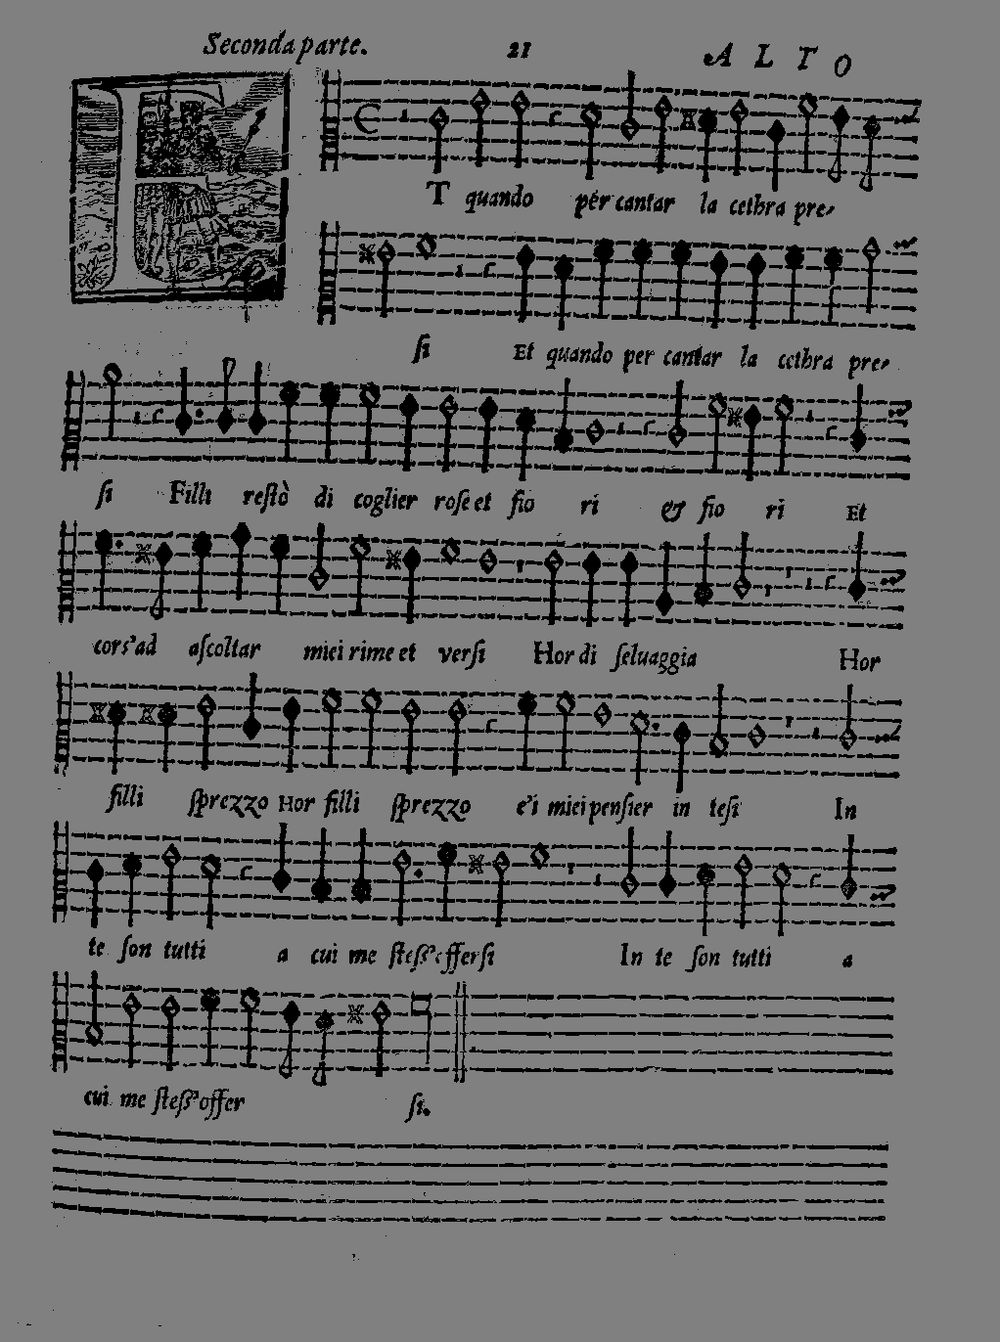 Seconda parte. 21 ALTO
ET quando per cantar la cethra pre-
si Et quando per cantar la cethra pre-
si Filli restò di coglier rose et fio ri & fio ri Et
cors'ad ascoltar miei rime et versi Hor di seluaggia Hor
filli sprezzo Hor filli sprezzo e'i miei pensier in tesi In
te son tutti a cui me stess'offersi In te son tutti a
cui me stess'offer si.